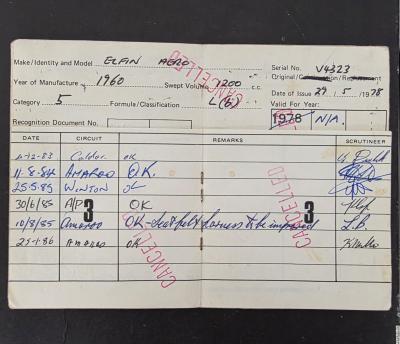 Make/Identity and Model ELFIN AERO Serial No. V4323
Original/Continuation/Replacement
Year of Manufacture 1960 Swept Volume 1200 c.c. Date of Issue 29.5/1978
Category 5 Formula/Classification L(b) Valid For Year:
Recognition Document No. 1978 N/A.
CANCELLED
CANCELLED
DATE CIRCUIT REMARKS SCRUTINEER
4-12-83 Calder OK
11-8-84 AMAROO O.K.
25-5-85 WINTON OK
30/6/85 A/P 3 OK 3
10/8/85 Amaroo OK - seat belt harness to be improved L.B.
25-1-86 Amaroo OK
CANCELLED
CANCELLED